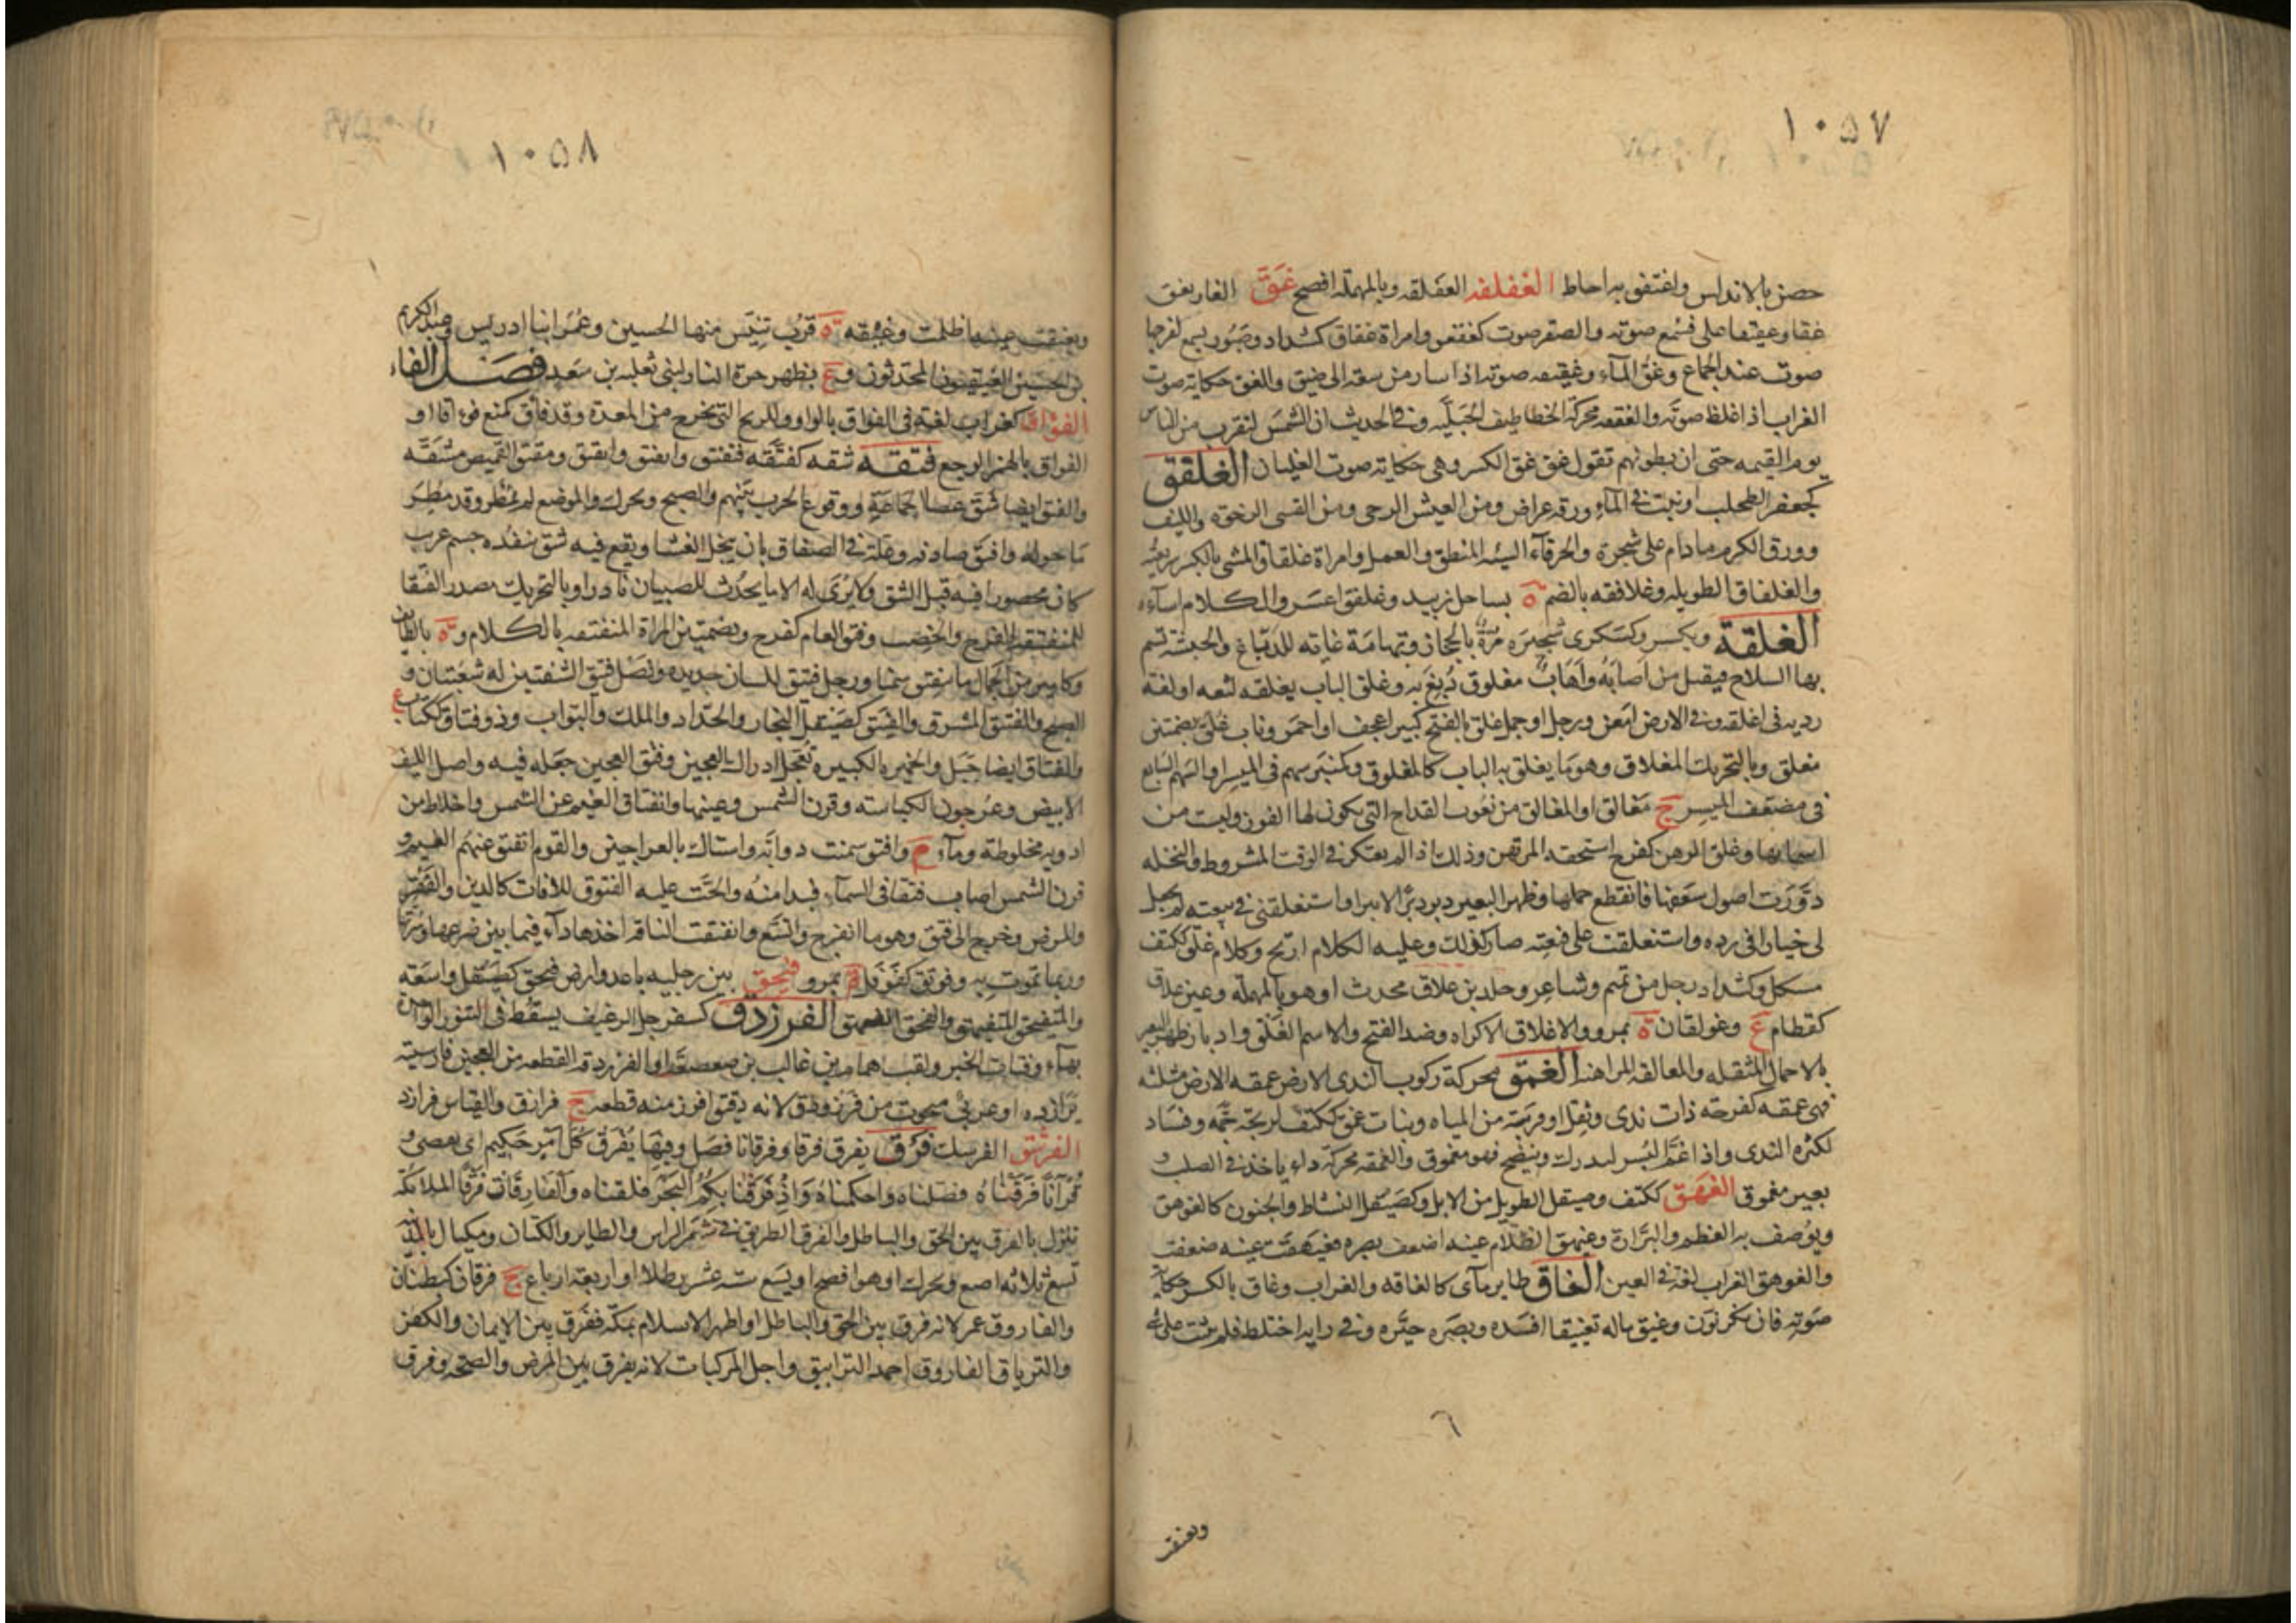 ١٠٥٧
حصن بالاندلس واغتفق به احاط الغفلقه العفلقه وبالمهملة افصح غق الغار يغق
غقا وغقيقا على فسمع صوته والصقر صوت كغقغق وامراة غقاق كشداد وصبور يسمع لفرجها
صوت عند الجماع وغق الماء وغقيقه صوته اذا سار من سعة الى ضيق والغق حكاية صوت
الغراب اذا غلظ صوته والغققه محركة الخطاطيف الجبلية وفي الحديث ان الشمس لتقرب من الناس
يوم القيمه حتى ان بطونهم تقول غق غق بالكسر وهي حكاية صوت الغليان الغلفق
كجعفر الطحلب او نبت في الماء ورقه عراض ومن العيش الرخي ومن القسي الرخوة والليف
وورق الكرم مادام على شجرة والخرقاء السيئه المنطق والعمل وامراة غلفاق المشي بالكسر سريعته
والغلفاق الطويله وغلافقه بالضم ة بساحل زبيد وغلفق اعسر والكلام اساءه
الغلقة ويكسر وكسكرى شجيرة مرة بالحجاز وتهامة غاية للدباغ والحبشة تسم
بها السلاح فيقتل من اصابه واهاب مغلوق دبغ به وغلق الباب يغلقه لثغه او لغة
رديه في اغلقه وفي الارض امعن ورجل او جمل غلق بالفتح كبير اعجف او احمر وباب غلق بضمتين
مغلق وبالتحريك المغلاق وهو ما يغلق به الباب كالمغلوق وكمنبر سهم في الميسر او السهم السابع
في مضعف الميسر ج مغالق او المغالق من نعوت القداح التي يكون لها الفوز وليست من
اسمايها وغلق الرهن كفرح استحقه المرتهن وذلك اذا لم يفتكر في الوقت المشروط والنخله
دودت اصول سعفها فانقطع حملها وظهر البعير دبر دبرا لا يبرا واستغلقني في بيعته لم يجعل
لي خيارا في رده واستغلقت على فعته صار كذلك وعليه الكلام ارتج وكلام غلق ككتف
مشكل وكشداد رجل من تميم وشاعر وخلد بن علاق محدث او هو بالمهملة وعين غلاق
كقطام ع وغولقان ة بمرو والاغلاق الاكراه وضد الفتح والاسم الغلق وادبار ظهر البعير
بالاحمال المثقله والمغالقه المراهنه الغمق محركة ركوب الندى الارض غمقه الارض مثلثه
فهي غمقه كفرحة ذات ندى وثقل او قريبة من المياه ونبات غمق ككتف لريحه خمة وفساد
لكثرة الندى واذا غم البسر ليدرك وينضج فهو مغموق والغمقه محركة داء ياخذ في الصلب و
بعير مغموق الغهق ككتف وصيقل الطويل من الابل وكصيقل النشاط والجنون كالغوهق
ويوصف به العظم والترارة وغيهق الظلام عينه اضعف بصره فغيهقت عينه ضعفت
والغوهق الغراب لغة في العين الغاق طاير مآى كالغاقه والغراب وغاق بالكسر حكاية
صوته فان نكر نون وغيق ماله تغييقا افسده وبصره حيره وفي رايه اختلط فلم يثبت على شي
٦
وتغيقت
١٠٥٨
وتغيقت عينه اظلمت وغيقه ة قرب تنيس منها الحسين وعمر ابنا ادريس وعبد الكريم
بن الحسين الغيقيون المحدثون وع بظهر حرة النار لبني ثعلبه بن سعد فصل الفاء
الفواق كغراب لغة في الفواق بالواو وللريح التي تخرج من المعدة وقد فاق كمنع فوءاقا او
الفواق بالهمز الوجع فتقه شقه كفتقه فتفتق وانفتق وانفتق ومفتق القميص مشقه
والفتق ايضا شق عصا الجماعة ووقوع الحرب بينهم والصبح ويحرك والموضع لم يمطر وقد مطر
ما حوله وافتق صادفه وعلة في الصفاق بان ينحل الغشا ويقع فيه شق ينفذه جسم غريب
كان محصورا فيه قبل الشق ولا يرى له الا ما يحدث للصبيان نادرا وبالتحريك مصدر الفتقا
للمنفتقة الفرج والخصب وفتق العام كفرح وبضمتين المراة المنفتقه بالكلام وة بالطايف
وكامير من الجمال ما ينفتق سمنا ورجل فتيق اللسان حديده ونصل فتيق الشفتين له شعبتان و
الصبح والمفتق المشرق والفيتق كصيقل النجار والحداد والملك والبواب وذو فتاق ككتاب ع
والفتاق ايضا جبل والخميره الكبيره تعجل ادراك العجين وفتق العجين جعله فيه واصل الليف
الابيض وعرجون الكباسه وقرن الشمس وعينها وانفتاق الغيم عن الشمس واخلاط من
ادويه مخلوطة وماء م وافتق سمنت دوابه واستاك بالعراجين والقوم انفتق عنهم الغيم و
قرن الشمس اصاب فتقا في السماء فبدا منه والحت عليه الفتوق للافات كالدين والفقر
والمرض وخرج الى فتق وهو ما انفرج واتسع وانفتقت الناقة اخذها داء فيما بين ضرعها وسرتها
وربما تموت به وفوتق كفوفل ة بمرو فحق بين رجليه باعد وارض فيحق كصيقل واسعة
والمتفحق المتفيهق والفحق الفهق الفرزدق كسفرجل الرغيف يسقط في التنور الواحدة
بهاء وفتات الخبز ولقب همام بن غالب بن صعصعة او الفرزدقه القطعه من العجين فارسيته
برازده او عربي منحوت من فرز ودق لانه دقيق افرز منه قطعه ج فرازق والقياس فرازد
الفرشق الفرسك فرق يفرق فرقا وفرقانا فصل وفيها يفرق كل امر حكيم اي يقضى و
قرآنا فرقناه فصلناه واحكمناه واذ فرقنا بكم البحر فلقناه والفارقات فرقا الملائكه
تنزل بالفرق بين الحق والباطل والفرق الطريق في شعر الراس والطاير والكتان ومكيال بالمدينه
تسع ثلاثه اصع ويحرك او هو افصح او يسع سته عشر رطلا او اربعة ارباع ج فرقان كبطنان
والفاروق عمر لانه فرق بين الحق والباطل او اظهر الاسلام بمكه ففرق بين الايمان والكفر
والترياق الفاروق احمد الترابيق واجل المركبات لانه يفرق بين المرض والصحه وفرق